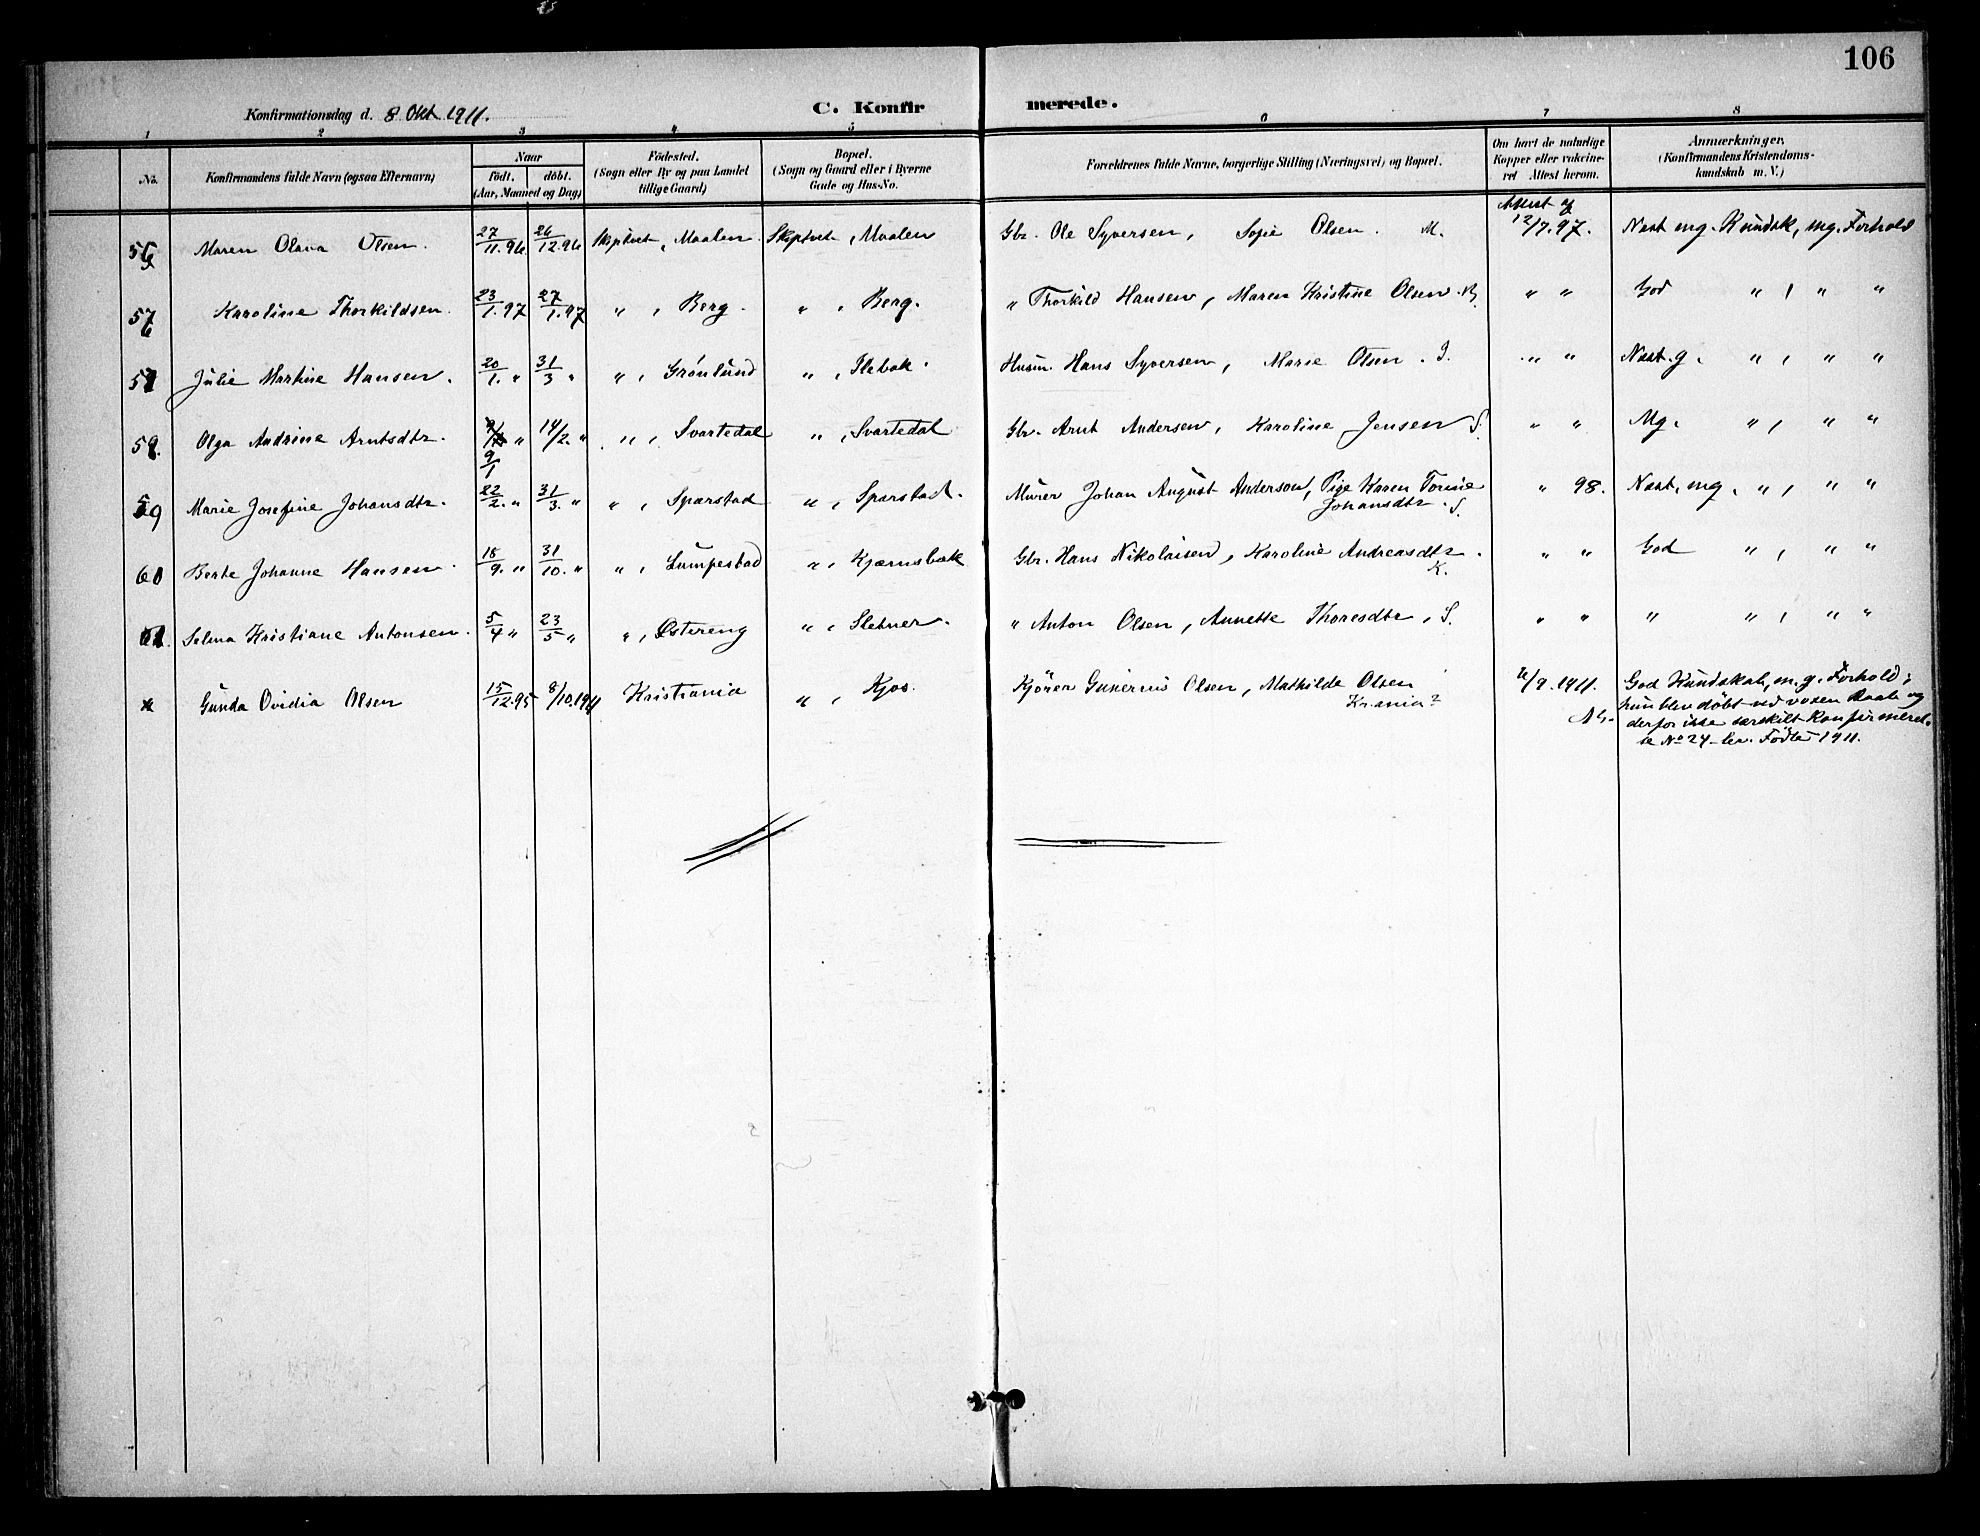 106
Konfirmationsdag d. 8 Okt. 1911.
C. Konfir
merede.
1 2 3 4 5 6 7 8
No.
Konfirmandens fulde Navn (ogsaa Efternavn)
Naar
födt. döbt.
(Aar, Maaned og Dag)
Födested.
(Sogn eller By og paa Landet
tillige Gaard)
Bopæl.
(Sogn og Gaard eller i Byerne
Gade og Hus-No.
Forældrenes fulde Navne, borgerlige Stilling (Næringsvei) og Bopæl.
Om havt de naturlige
Kopper eller vakcine-
ret Attest herom.
Anmærkninger.
(Konfirmandens Kristendoms-
kundskab m. V.)
Maren Olava Olsen. 27/11.96 26/12.96 Skiptvet, Maalen. Skiptvet, Maalen Gbr. Ole Syversen, Sofie Olsen. M. Attest af 12/7.97. Næst mg. Kundsk, mg. Forhold
Karoline Thorkildsen. 23/1.97 27/1.97 " , Berg. " , Berg. " Thorkild Hansen, Maren Kristine Olsen. B. " " God " , " "
Julie Martine Hansen. 20/1. " 31/3 " " , Grönlund " , Ilebak. Husm. Hans Syversen, Marie Olsen. I. " " Næst. g. " , " "
Olga Andrine Arntsdtr. 9/1 " 14/2. " " , Svartedal " , Svartedal Gbr. Arnt Andersen, Karoline Jensen S. " " Mg. " , " "
59 Marie Josefine Johansdtr. 22/2. " 31/3. " " , Sparstad " , Sparstad. Murer Johan August Anderson, Pige Karen Torine
Johansdtr. S. " 98. Næst, mg. " , " "
60 Berte Johanne Hansen. 18/9. " 31/10. " " , Lumpestad " , Kjærnsbæk Gbr. Hans Nikolaisen, Karoline Andreasdtr.
K. " " God " , " "
Selma Kristiane Antonsen. 5/4 " 23/5 " " , Östereng " , Sletner. " Anton Olsen, Annette Thoresdtr, S. " " " " , " "
Gunda Ovidia Olsen 15/12.95 8/10.1911 Kristiania " , Kjos. Kjörer Gunerius Olsen, Mathilde Olsen
Kr.ania? /9.1911. God Kundskab, m.g. Forhold;
hun blev döbt ved voxen Daab og
derfor ikke særskilt Konfirmeret.
se No 24 Födte 1911.